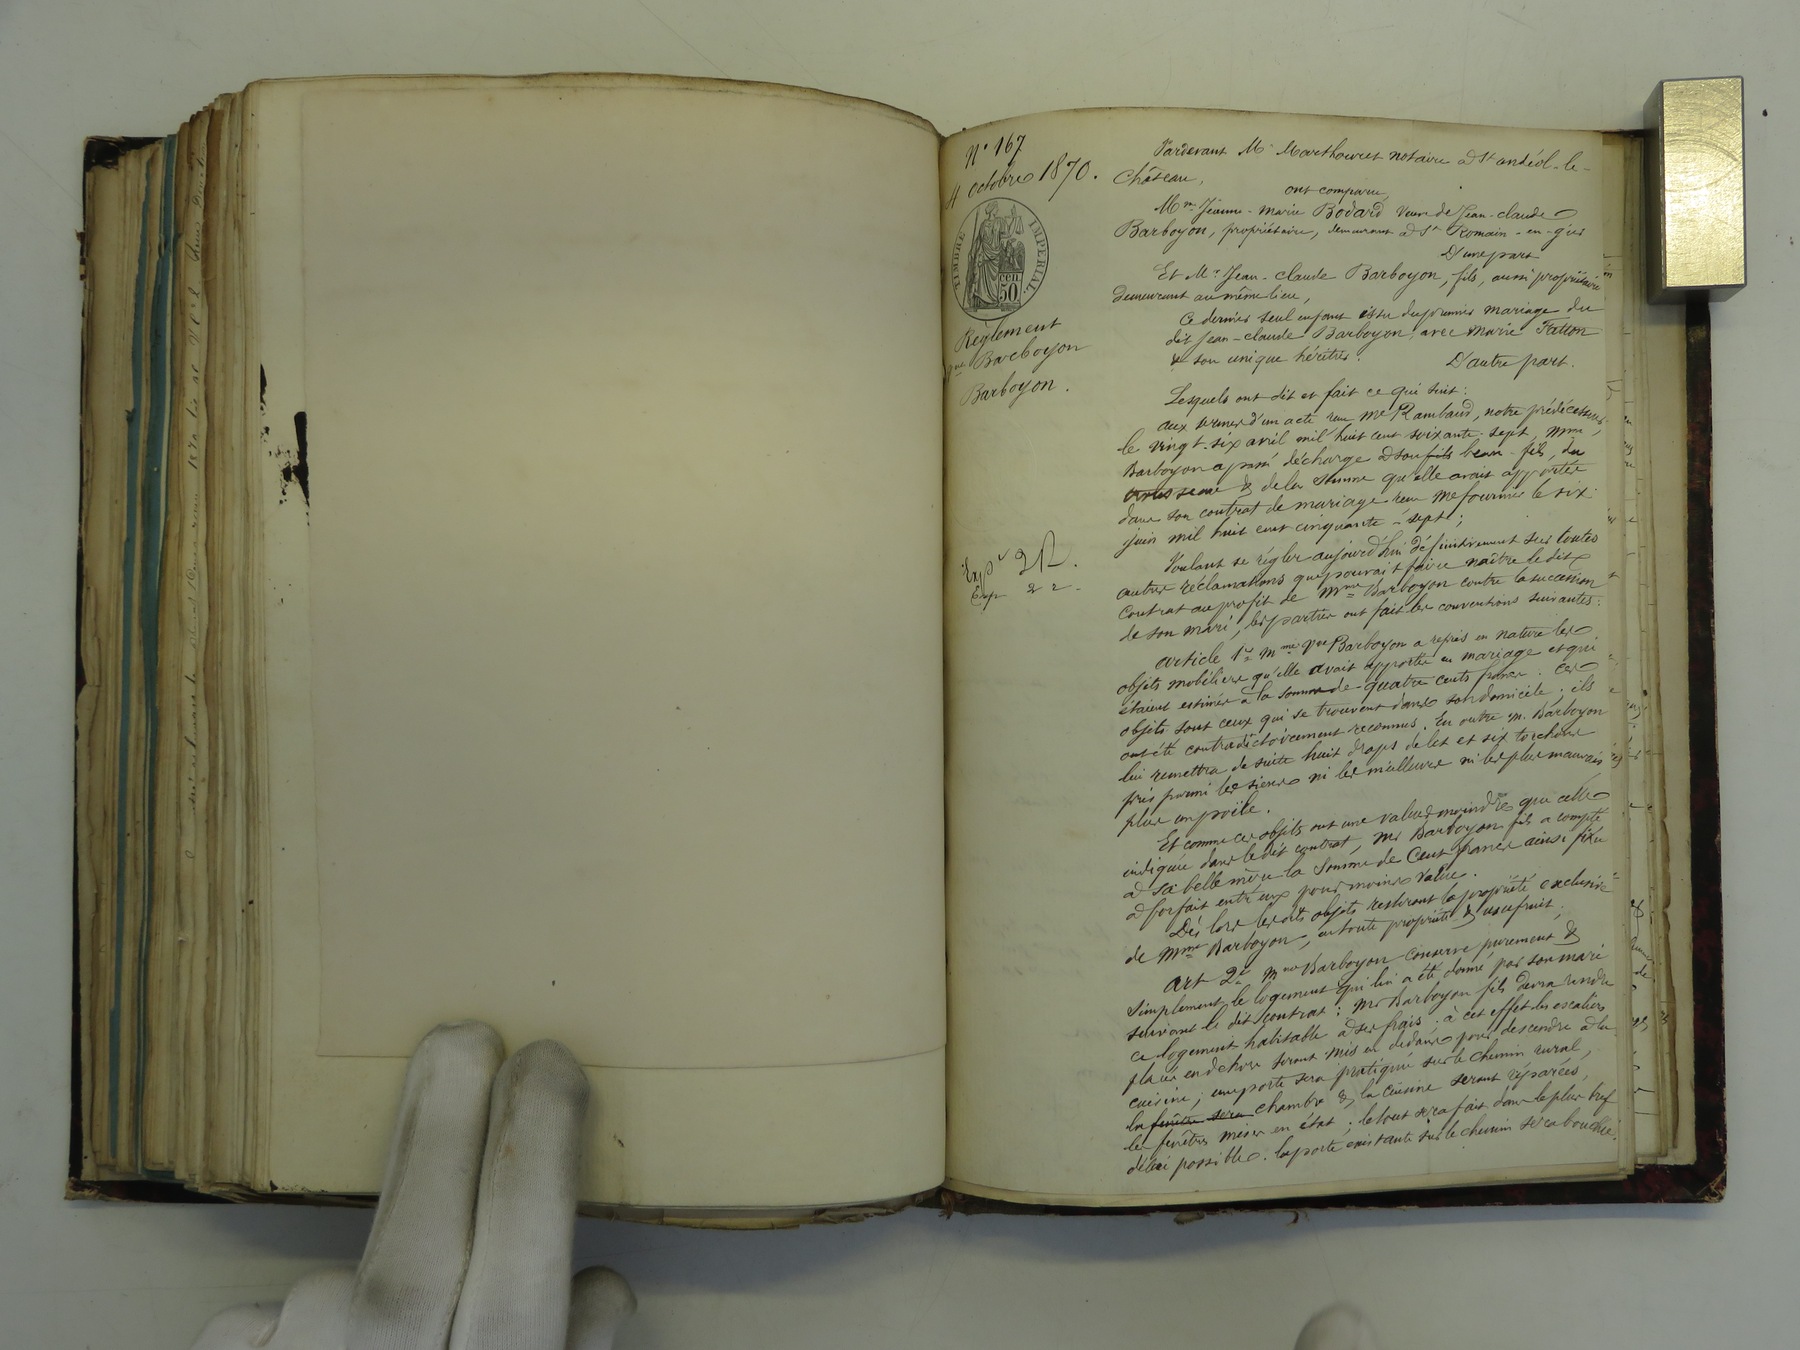 N° 167
4 octobre 1870.
TIMBRE IMPERIAL
CEN
50
Règlement
Vve Barboyon
Barboyon.
Exp
Pardevant Me Marthouret notaire à St andéol-le-
Château,
ont comparu
Mme Jeanne-Marie Bodard veuve de Jean-claude
Barboyon, propriétaire, demeurant à St Romain-en-gier
D'une part
Et Mr Jean-claude Barboyon, fils, aussi propriétaire
demeurant au même lieu,
Ce dernier seul enfant issu du premier mariage du
dit Jean-claude Barboyon avec Marie Fatton
& son unique héritier. D'autre part.
Lesquels ont dit et fait ce qui suit:
aux termes d'un acte reçu Me Rambaud, notre prédécesseur,
le vingt-six avril mil huit cent soixante-sept, Mme
Barboyon a passé décharge à son fils beau-fils, du
trousseau & de la somme qu'elle avait apportée
dans son contrat de mariage reçu Me fournier le six
juin mil huit cent cinquante-sept;
Voulant se régler aujourd'hui définitivement sur toutes
autres réclamations que pouvait faire naître le dit
contrat au profit de Mme Barboyon contre la succession
de son mari, les parties ont fait les conventions suivantes:
article 1er Mme Vve Barboyon a repris en nature les
objets mobiliers qu'elle avait apportés en mariage et qui
étaient estimés à la somme de quatre cents francs. Ces
objets sont ceux qui se trouvent dans son domicile; ils
ont été contradictoirement reconnus. En outre M. Barboyon
lui remettra de suite huit draps de lit et six torchons
pris parmi les siens ni les meilleurs ni les plus mauvais
plus un poële.
Et comme ces objets ont une valeur moindre que celle
indiquée dans le dit contrat, Mr Barboyon fils a compté
à sa belle mère la somme de Cent francs ainsi fixée
à forfait entre eux pour moins value.
Dès lors les dits objets resteront la propriété exclusive
de Mme Barboyon, en toute propriété & usufruit.
art 2e Mme Barboyon conserve purement &
simplement le logement qui lui a été donné par son mari
suivant le dit contrat: Mr Barboyon fils devra rendre
ce logement habitable à ses frais; à cet effet les escaliers
placés en dehors seront mis en dedans pour descendre à la
cuisine; une porte sera pratiquée sur le chemin rural,
la fenêtre sera chambre & la cuisine seront réparées,
les fenêtres mises en état; le tout sera fait dans le plus bref
délai possible. la porte existante sur le chemin sera bouchée.